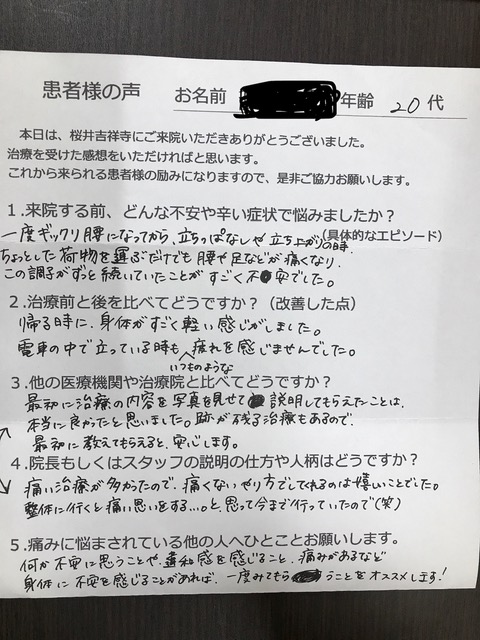 患者様の声 お名前 年齢 20代
本日は、桜井吉祥寺にご来院いただきありがとうございました。
治療を受けた感想をいただければと思います。
これから来られる患者様の励みになりますので、是非ご協力お願いします。
1.来院する前、どんな不安や辛い症状で悩みましたか?
(具体的なエピソード)
一度ギックリ腰になってから、立ちっぱなしや立ち上がりの時、
ちょっとした荷物を運ぶだけでも腰や足などが痛くなり、
この調子がずっと続いていたことがすごく不安でした。
2.治療前と後を比べてどうですか?(改善した点)
帰る時に、身体がすごく軽い感じがしました。
電車の中で立っている時も いつものような 疲れを感じませんでした。
3.他の医療機関や治療院と比べてどうですか?
最初に治療の内容を写真を見せて 説明してもらえたことは、
本当に良かったと思いました。跡が残る治療もあるので、
最初に教えてもらえると、安心します。
4.院長もしくはスタッフの説明の仕方や人柄はどうですか?
痛い治療が多かったので、痛くないやり方でしてくれるのは嬉しいことでした。
整体に行くと痛い思いをする…。と思って今まで行っていたので(笑)
5.痛みに悩まされている他の人へひとことお願いします。
何か不安に思うことや違和感を感じること、痛みがあるなど
身体に不安を感じることがあれば、一度みてもらうことをオススメします!